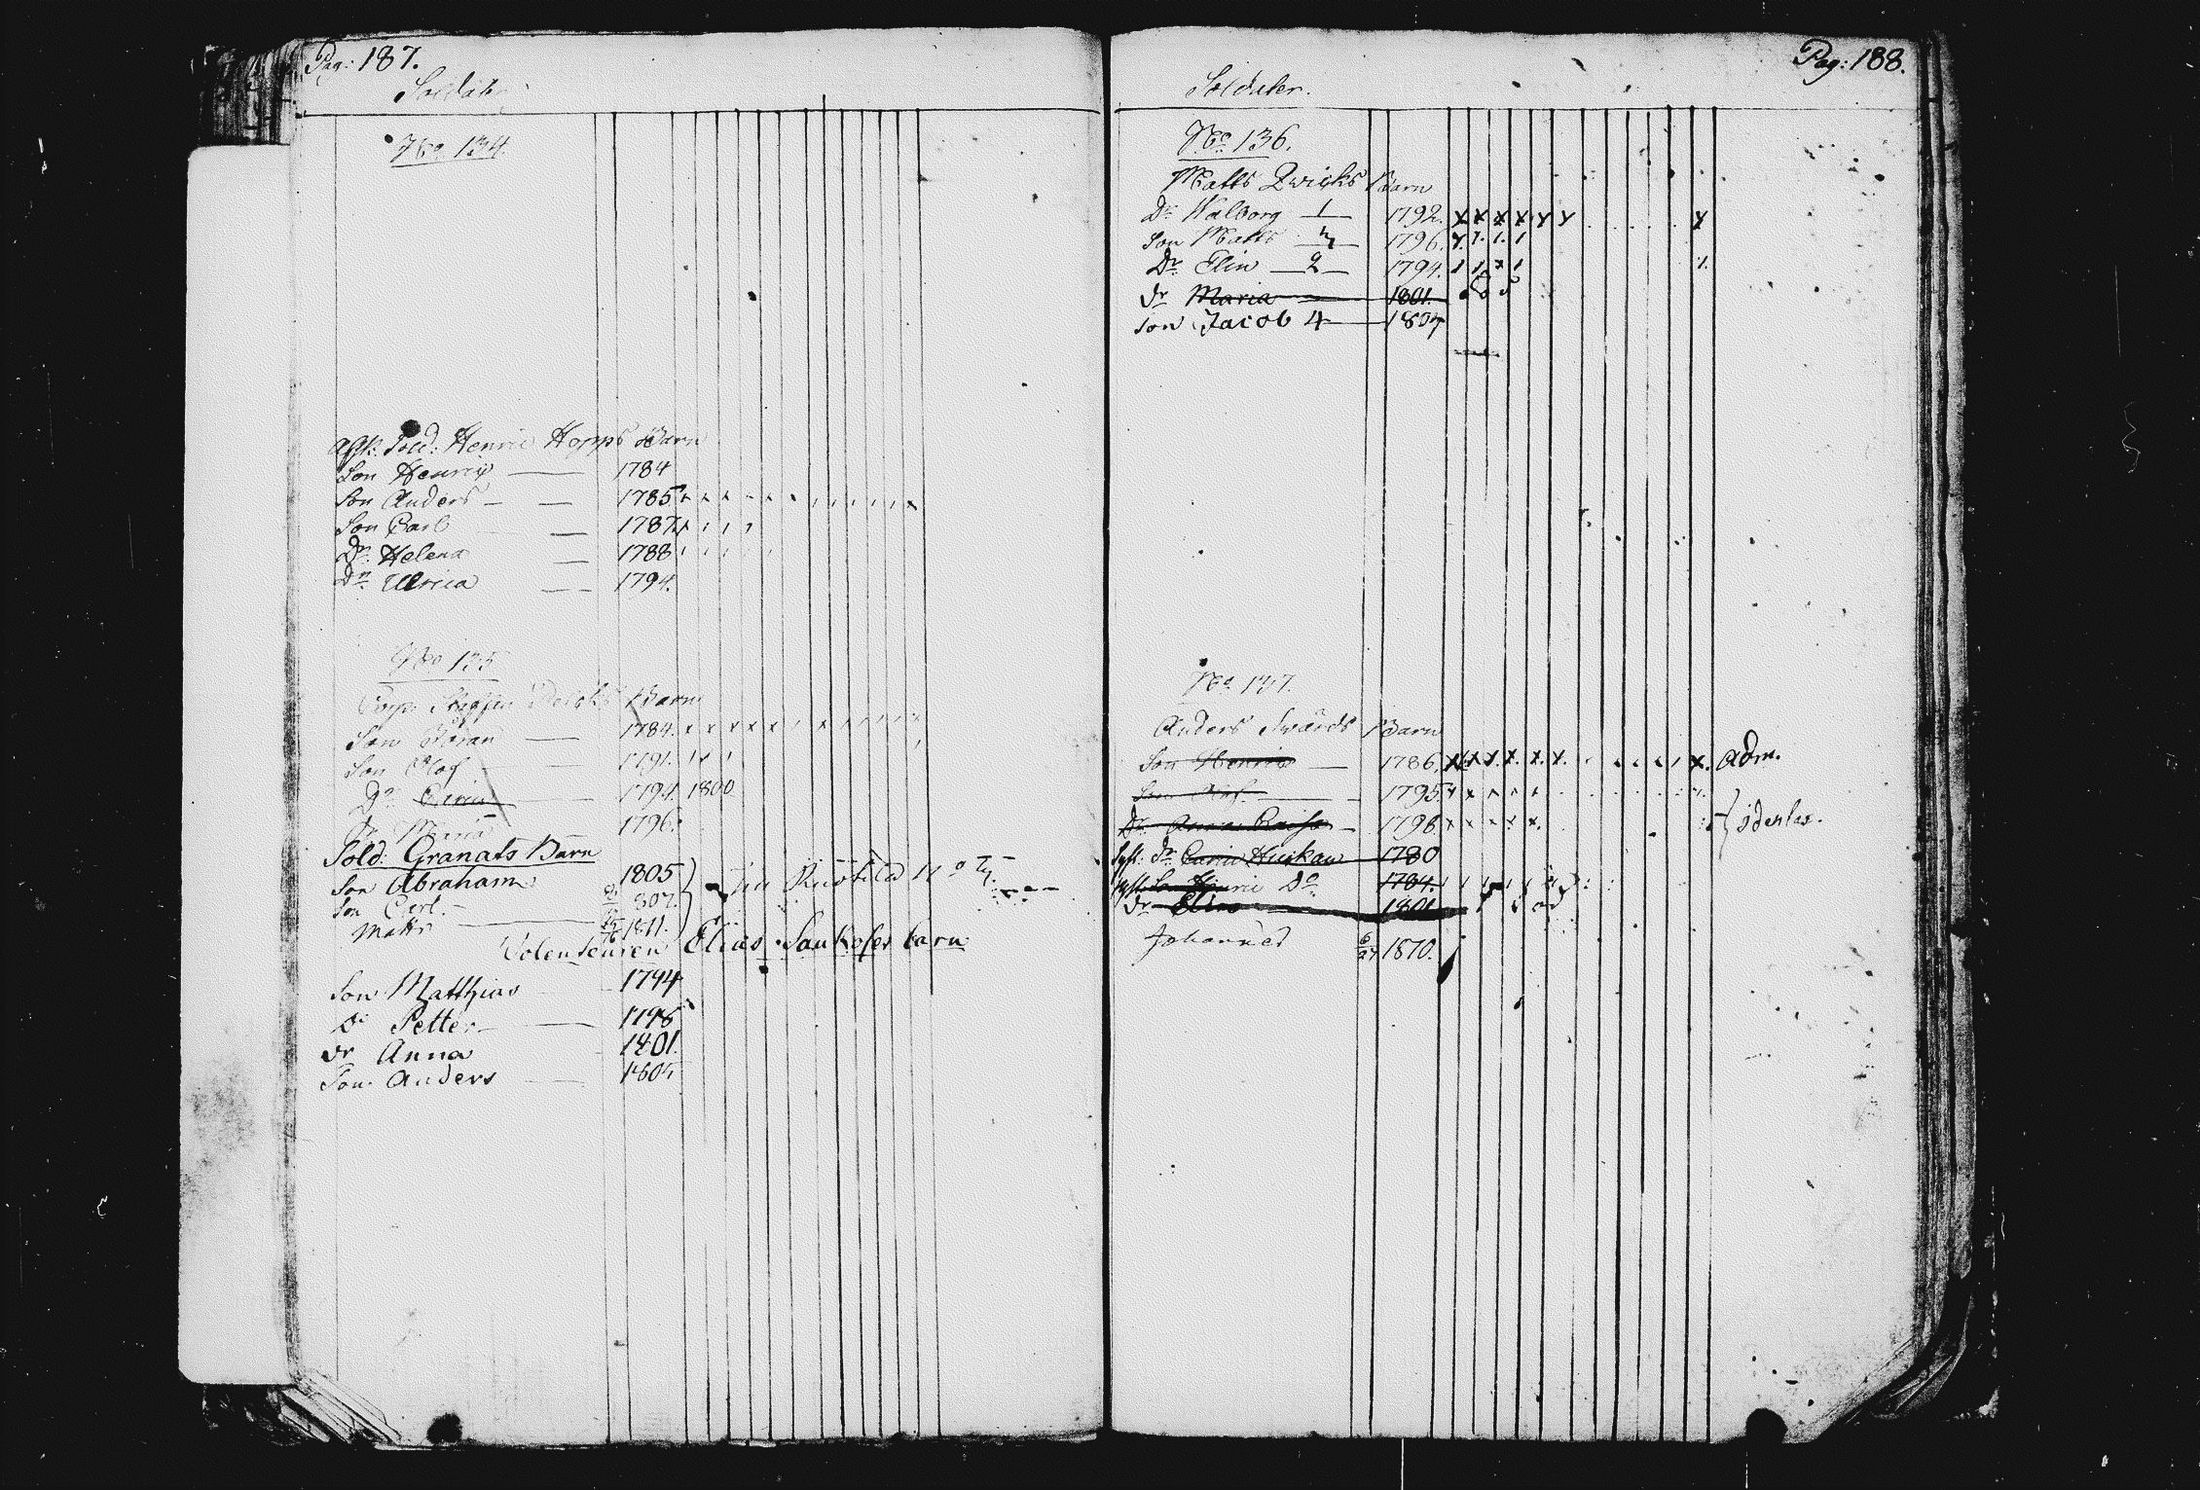 Pag: 187.
Soldater
No 134.
afsk: Sold: Henric Hopps Barn
Son Henric 1784
Son Anders 1785
Son Carl 1787.
Dr Helena 1788
Dr Ulrica 1794.
No 135
Barn
Son Jöran 1784.
Son Olof 1791.
Dr 1794. 1800
Dr Maria 1796.
Sold: Granats Barn
Son Abraham 1805
Son Carl. 807.
Matts 1811.
Elias Barn
Son Matthias 1794
Do Petter 1798
Dr Anna 1801.
Son Anders 1804
Pag: 188.
Soldater.
No 136.
Matts Qvicks Barn
Dr Walborg 1 1792.
Son Matts 1796.
Dr Elin 2 1794.
dr Maria 1801.
Son Jacob 4 1804
No 137.
Anders Swärds Barn
Son Henric 1786. adm.
Son 1795.
Dr Anna Caisa 1798
dr Carin Huskaw 1780
Son Henric Do 1784.
Dr Elin 1801
Johannes 6/27 1810.